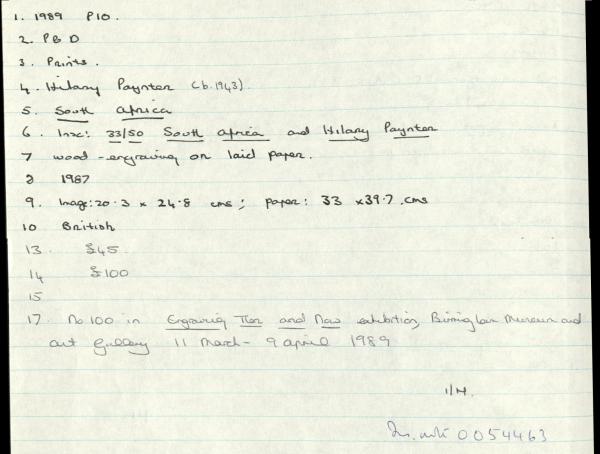 1. 1989 P10.
2. P & D
3. Prints.
4. Hilary Paynter (b.1943).
5. South Africa
6. Insc: 33/50 South Africa and Hilary Paynter
7 wood-engraving on laid paper.
8 1987
9. Image: 20.3 x 24.8 cms; paper: 33 x 39.7.cms
10 British
13. £45
14 £100
15
17. No 100 in Engraving Then and Now exhibition, Birmingham Museum and
art Gallery 11 March - 9 april 1989
1/H.
0054463